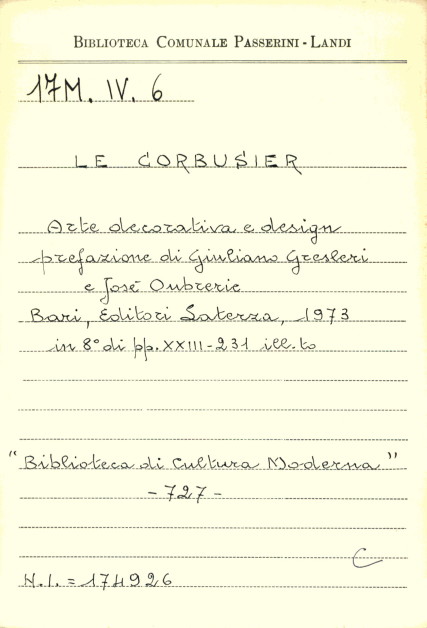 BIBLIOTECA COMUNALE PASSERINI - LANDI
17M. IV. 6
LE CORBUSIER
Arte decorativa e design
prefazione di Giuliano Gresleri
e José Oubrerie
Bari, Editori Laterza, 1973
in 8° di pp. XXIII-231 ill.to
"Biblioteca di Cultura Moderna"
- 727 -
C
N.I. = 174926